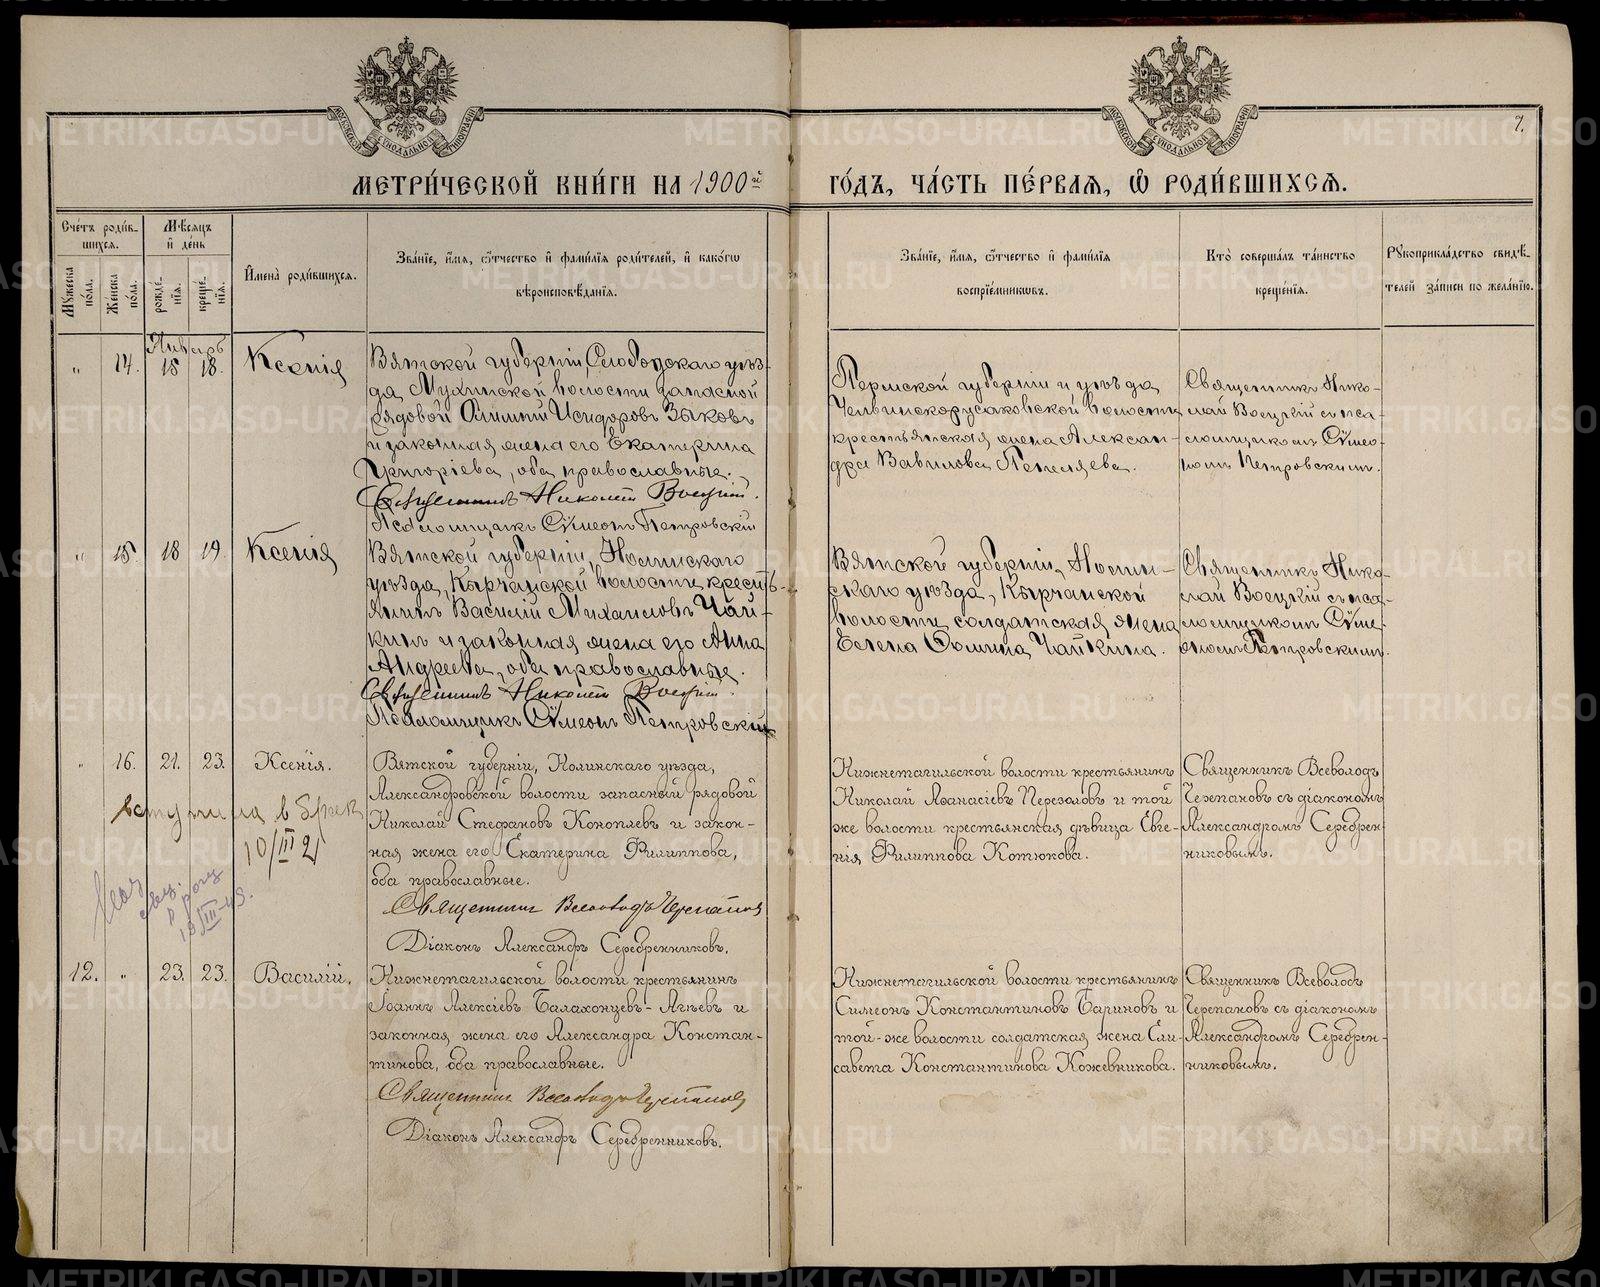 7.
МЕТРИ́ЧЕСКОЙ КНИ́ГИ НА 1900й ГО́ДЪ, ЧА́СТЬ ПЕ́РВАЯ, Ѿ РОДИ́ВШИХСЯ.
Сче́тъ роди́в-
шихся.
Мѣ́сяцъ
и҆ де́нь
Му́жеска по́ла.
Же́нска по́ла.
рожде-
нїя.
креще́-
нїя.
И҆мена̀ роди́вшихся.
Зва́нїе, и҆́мя, ѻ҆́тчество и҆ фами́лїя роди́телей, и҆ како́гѡ
вѣроисповѣ́данїя.
Зва́нїе, и҆́мя, ѻ҆́тчество и҆ фами́лїя
воспрїе́мникѡвъ.
Кто̀ соверша́лъ та́инство
креще́нїя.
Рꙋкоприкла́дство свидѣ́-
телей за́писи по жела́нїю.
Январь
" 14. 15 18. Ксенія
Вятской губерніи, Слободскаго уѣз-
да, Мухинской волости запасной
рядовой Филиппъ Исидоровъ Зыковъ
и законная жена его Екатерина
Григоріева, оба православные.
Священникъ Николай Воецкій.
Псаломщикъ Сѵмеонъ Петровскій
Пермской губерніи и уѣзда
крестьянская жена Алексан-
дра Вавилова Пепеляева.
Священникъ Нико-
лай Воецкій съ пса-
ломщикомъ Сѵме-
номъ Петровскимъ.
" 15. 18 19. Ксенія
Вятской губерніи, Нолинскаго
уѣзда, Кырчанской волости, кресть-
янинъ Василій Михаиловъ Чай-
кинъ и законная жена его Анна
Андреева, оба православные.
Священникъ Николай Воецкій.
Псаломщикъ Сѵмеонъ Петровскій
Вятской губерніи, Нолин-
скаго уѣзда, Кырчанской
волости, солдатская жена
Елена Фомина Чайкина.
Священникъ Нико-
лай Воецкій съ пса-
ломщикомъ Сѵме-
ономъ Петровскимъ.
" 16. 21. 23. Ксенія.
вступила в брак
10/III 21
свид.
о рожд
19/III-45.
Вятской губерніи, Нолинскаго уѣзда,
Александровской волости запасный рядовой
Николай Стефановъ Коноплевъ и закон-
ная жена его Екатерина Филиппова,
оба православные.
Священникъ Всеволодъ Черепановъ
Діаконъ Александръ Серебренниковъ.
Нижнетагильской волости крестьянинъ
Николай Аѳанасіевъ Перезоловъ и той
же волости крестьянская дѣвица Евге-
нія Филиппова Котюкова.
Священникъ Всеволодъ
Черепановъ съ діакономъ
Александромъ Серебрен-
никовымъ.
12. " 23. 23. Василій.
Нижнетагильской волости крестьянинъ
Іоаннъ Алексіевъ Балахонцевъ-Агѣевъ и
законная жена его Александра Констан-
тинова, оба православные.
Священникъ Всеволодъ Черепановъ
Діаконъ Александръ Серебренниковъ.
Нижнетагильской волости крестьянинъ
Симеонъ Константиновъ Бариновъ и
той-же волости солдатская жена Ели-
савета Константинова Кожевникова.
Священникъ Всеволодъ
Черепановъ съ діакономъ
Александромъ Серебрен-
никовымъ.
METRIKI.GASO-URAL.RU